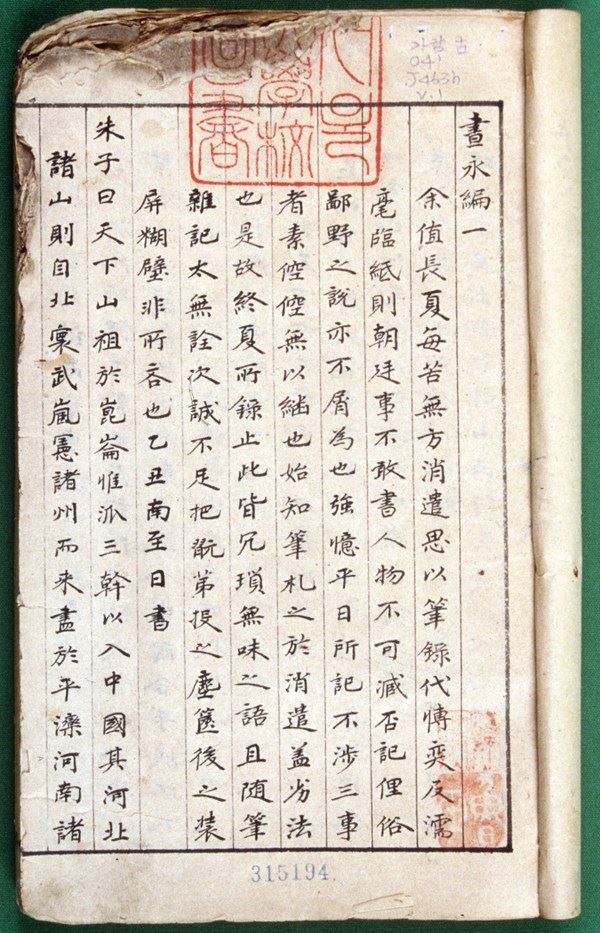 가람 古
041
J463h
V.1
大學校
圖書
晝永編一
余值長夏每苦無方消遣思以筆錄代愽奕反濡
毫臨紙則朝廷事不敢書人物不可減否記俚俗
鄙野之說亦不屑為也強憶平日所記不涉三事
者素倥倥無以継也始知筆札之於消遣盖劣法
也是故終夏所錄止此皆冗瑣無味之語且随筆
雜記太無詮次誠不足把翫第投之塵篋後之裝
屏糊壁非所吝也乙丑南至日書
朱子曰天下山祖於崑崙惟派三幹以入中國其河北
諸山則自北寰武嵐憲諸州而來盡於平灤河南諸
315194